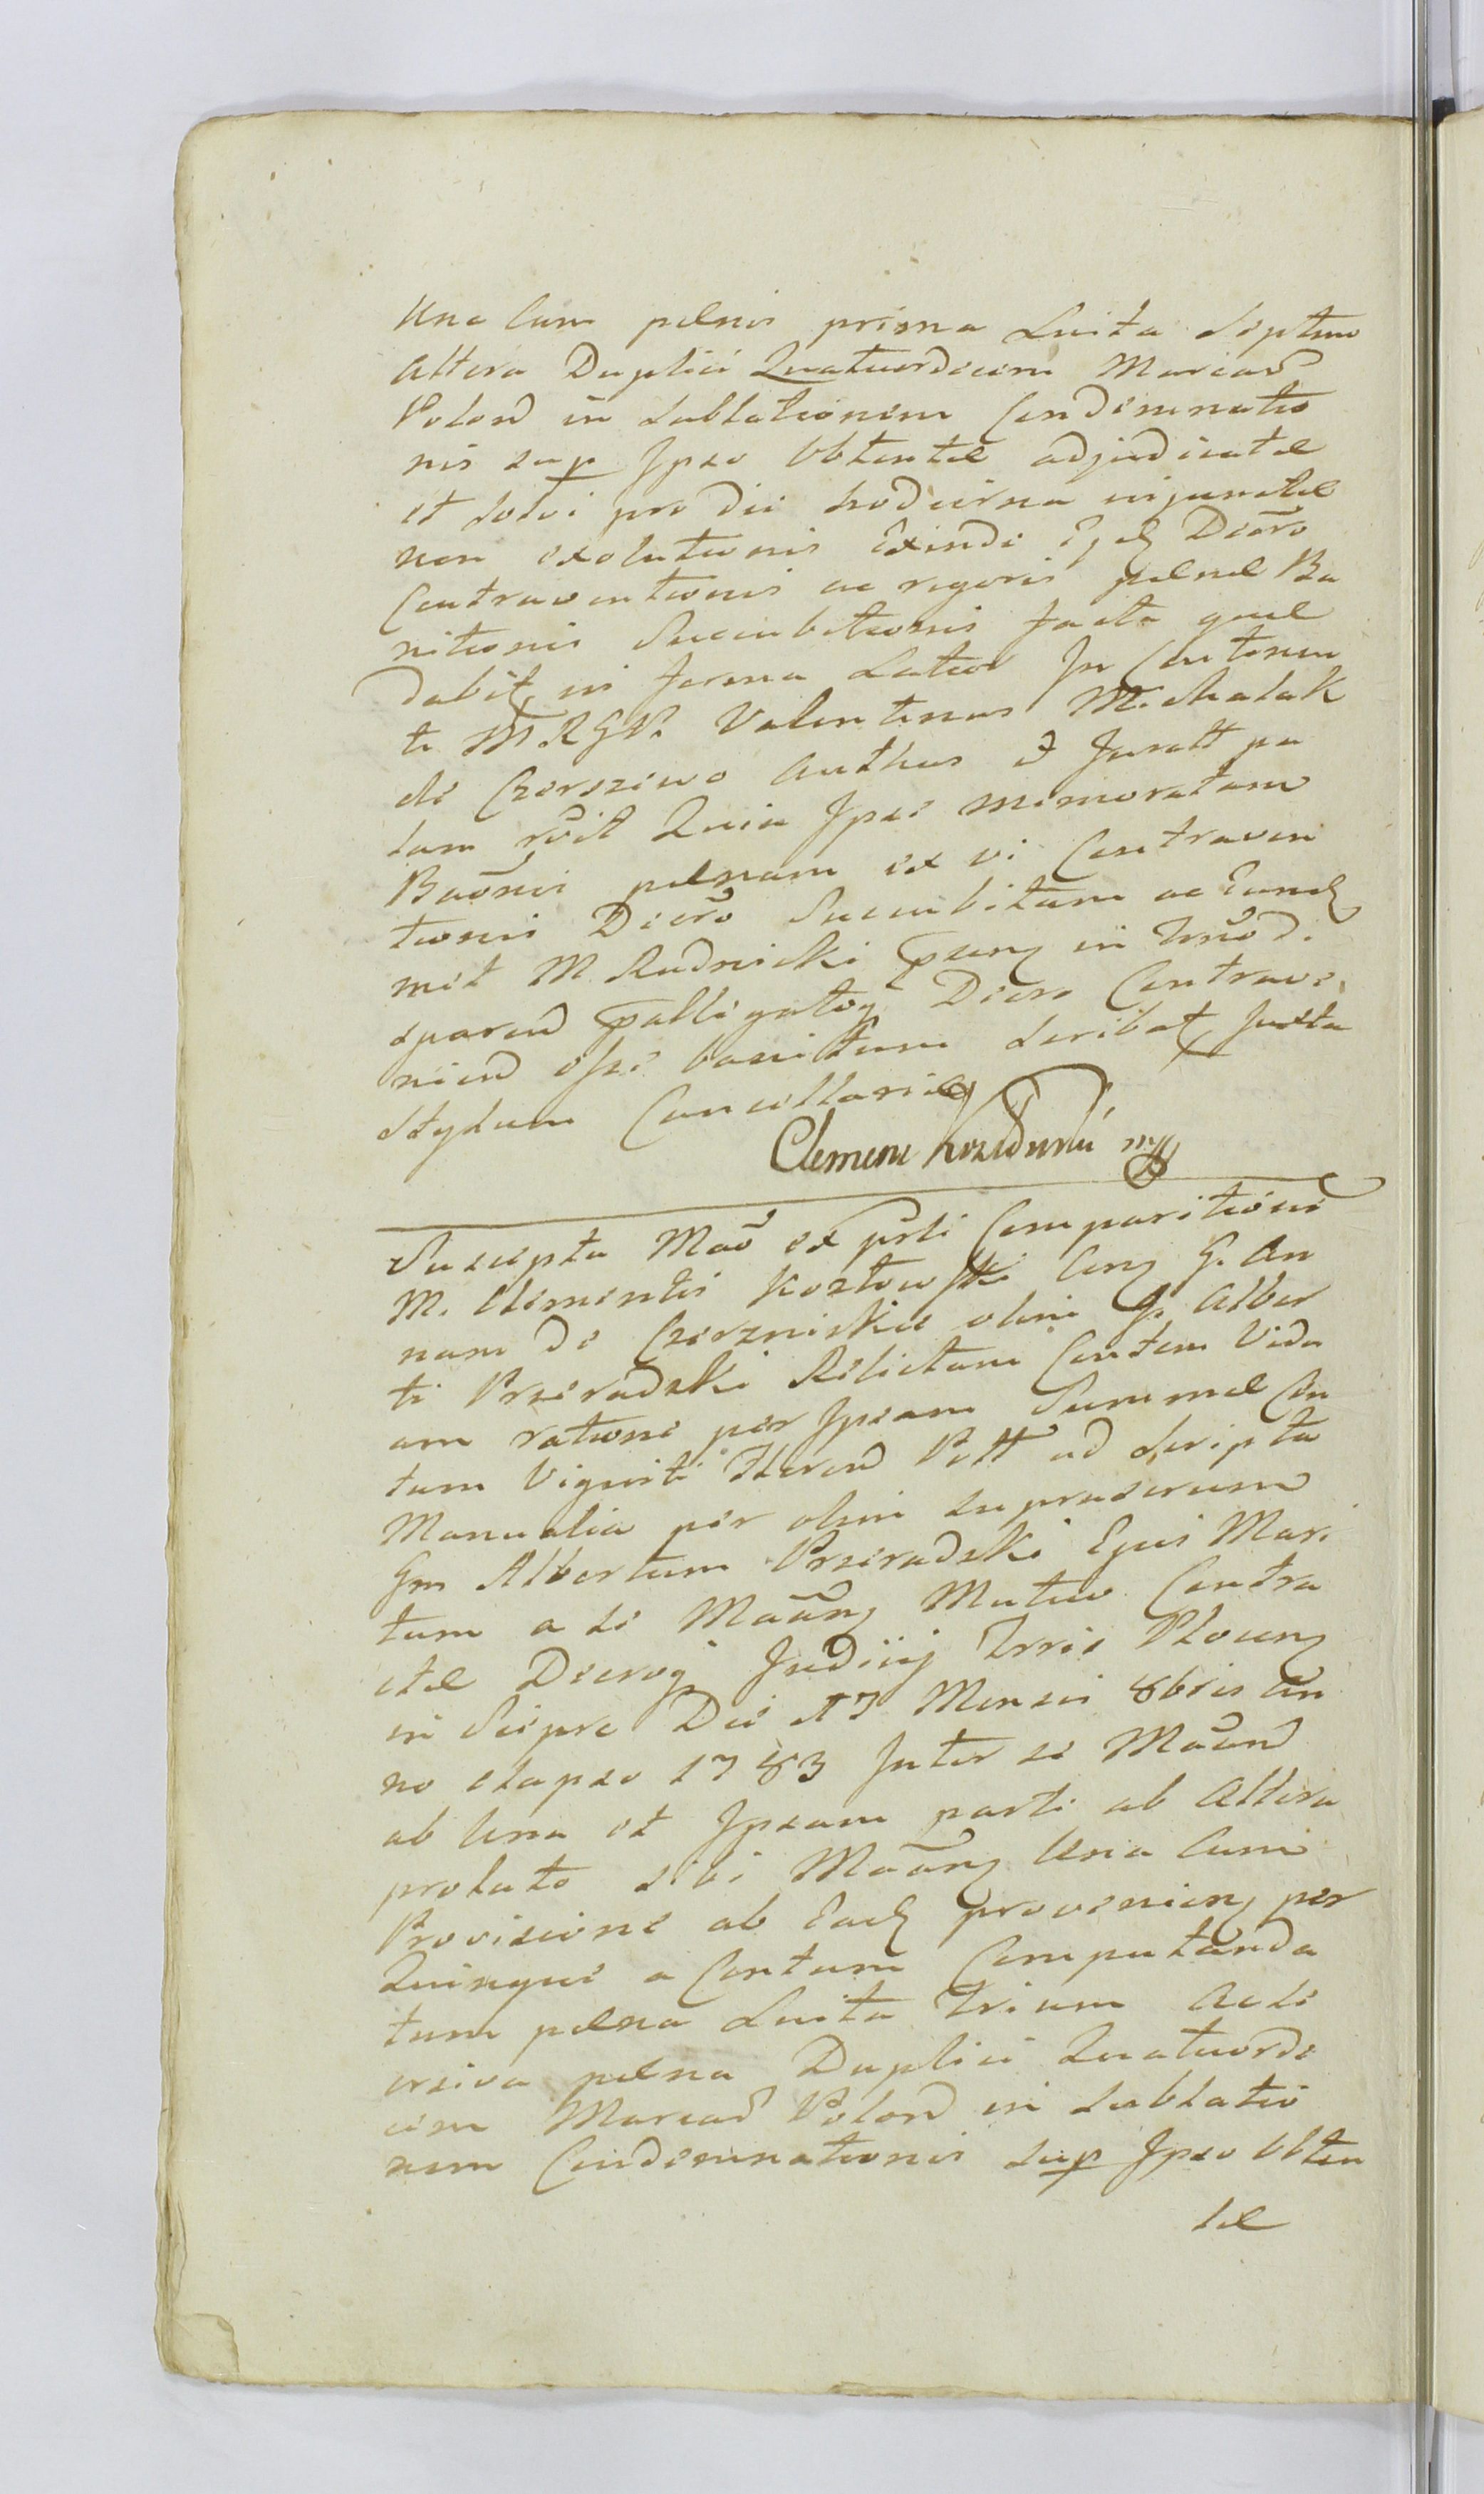 Una Cum pænis prima Luita Septem
altera Duplici Quatuordecim Marcar
Polon in sublationem Condemnatio
nis sup Ipso Obtentæ adjudicatæ
et solvi pro die hodierna injunctæ
non exolutionis Exinde Ejd Decro
Contraventionis ac rigoris pænæ Ba
nitionis Succubitionis facto quæ
dabit in forma Latior In Conten
ti MRGP. Valentinus Michalak
de Czerszewo Authus et Juratt pa
lam rdit Quia Ipse memoratam
Banonis pænam ex vi Contraven
tionis Decro Succubitam ac Eund
met M. Rudnicki in
Decro Contrave
niend esse banitum scribat Juxta
stylum Cancellariæ
Clemens Kozłowski mp
Suscepta Mao ex prti Comparitione
M. Clementis Kozłowski Cong G. An
nam de Czerznickie olim G. Alber
ti Przeradzki Relictam Contem Vidu
am ratione per Ipsam Summæ Cen
tum Viginti floren Poll ad scripta
Manualia per olim supraserum
Gm Albertum Przeradzki Ejus Mari
tum a se Maang Mutuo Contra
ctæ Decrog Judicij Trris Plocen
in Sierpc Die 17 Mensis 8bris an
no elapso 1783 Inter se Maand
ab Una et Ipsam parte ab altera
prolato sibi Maang Una Cum
Provisione ab Ead provenien per
Quinque a Centum Computanda
tum pæna Luita Trium ac di
ersiva pæna Duplici Quatuorde
cim Marcar Polon in sublatio
nem Condemnationis sup Ipso Obten
tæ